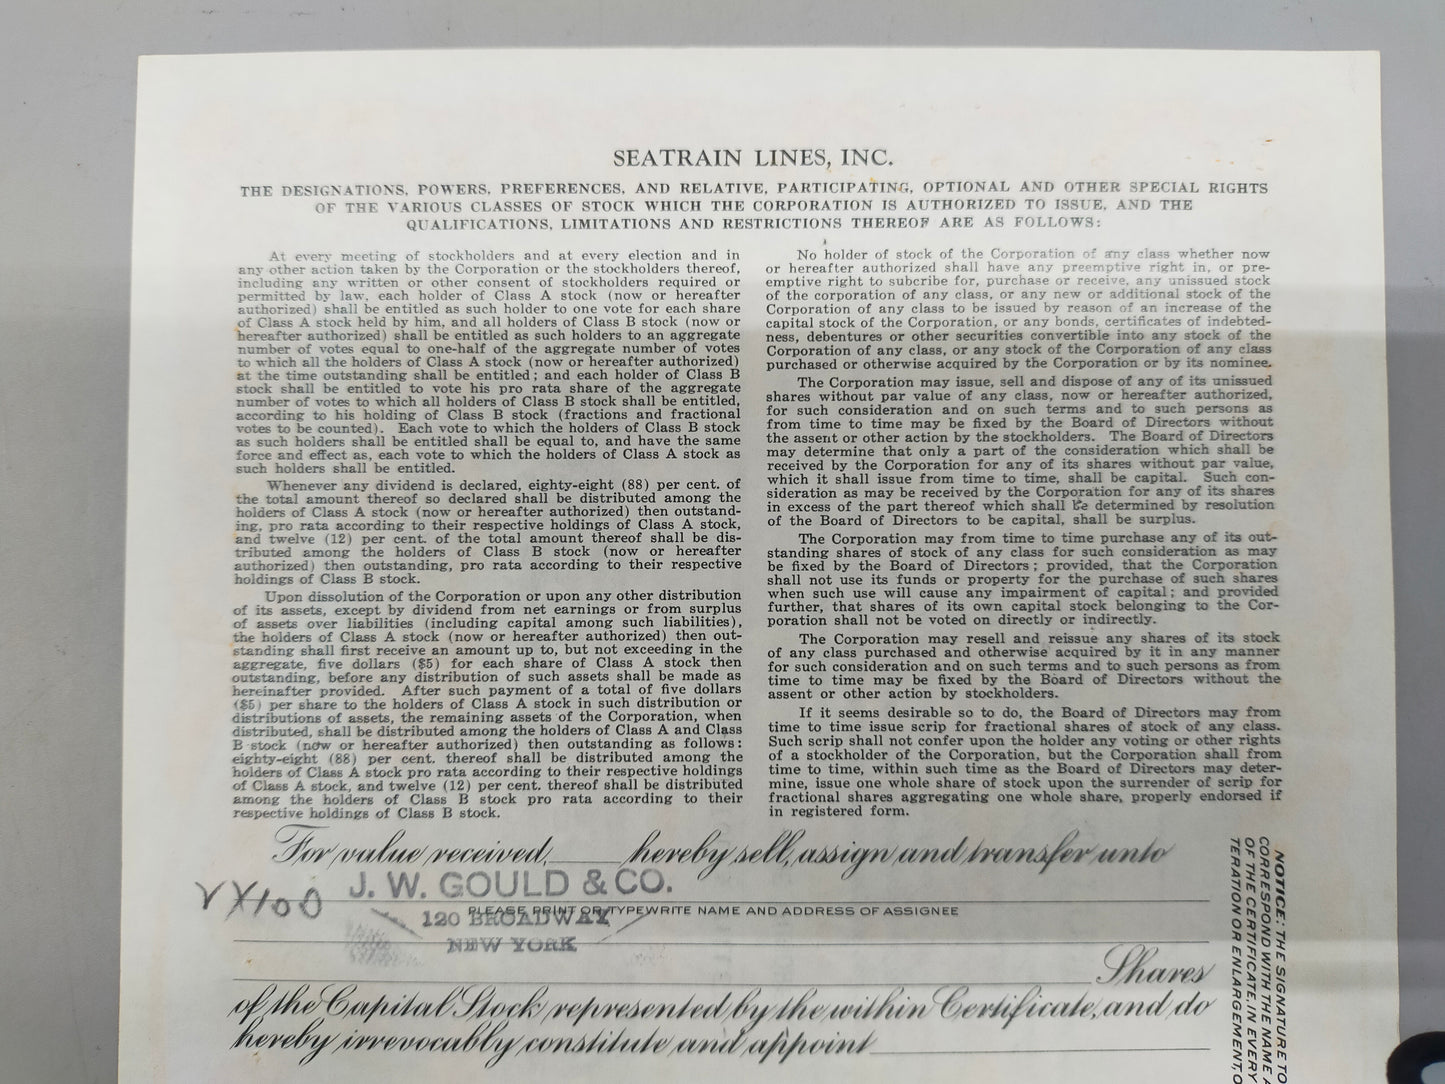 SEATRAIN LINES, INC.
THE DESIGNATIONS, POWERS, PREFERENCES, AND RELATIVE, PARTICIPATING, OPTIONAL AND OTHER SPECIAL RIGHTS
OF THE VARIOUS CLASSES OF STOCK WHICH THE CORPORATION IS AUTHORIZED TO ISSUE, AND THE
QUALIFICATIONS, LIMITATIONS AND RESTRICTIONS THEREOF ARE AS FOLLOWS:
At every meeting of stockholders and at every election and in
any other action taken by the Corporation or the stockholders thereof,
including any written or other consent of stockholders required or
permitted by law, each holder of Class A stock (now or hereafter
authorized) shall be entitled as such holder to one vote for each share
of Class A stock held by him, and all holders of Class B stock (now or
hereafter authorized) shall be entitled as such holders to an aggregate
number of votes equal to one-half of the aggregate number of votes
to which all the holders of Class A stock (now or hereafter authorized)
at the time outstanding shall be entitled; and each holder of Class B
stock shall be entitled to vote his pro rata share of the aggregate
number of votes to which all holders of Class B stock shall be entitled,
according to his holding of Class B stock (fractions and fractional
votes to be counted). Each vote to which the holders of Class B stock
as such holders shall be entitled shall be equal to, and have the same
force and effect as, each vote to which the holders of Class A stock as
such holders shall be entitled.
Whenever any dividend is declared, eighty-eight (88) per cent. of
the total amount thereof so declared shall be distributed among the
holders of Class A stock (now or hereafter authorized) then outstand-
ing, pro rata according to their respective holdings of Class A stock,
and twelve (12) per cent. of the total amount thereof shall be dis-
tributed among the holders of Class B stock (now or hereafter
authorized) then outstanding, pro rata according to their respective
holdings of Class B stock.
Upon dissolution of the Corporation or upon any other distribution
of its assets, except by dividend from net earnings or from surplus
of assets over liabilities (including capital among such liabilities),
the holders of Class A stock (now or hereafter authorized) then out-
standing shall first receive an amount up to, but not exceeding in the
aggregate, five dollars ($5) for each share of Class A stock then
outstanding, before any distribution of such assets shall be made as
hereinafter provided. After such payment of a total of five dollars
($5) per share to the holders of Class A stock in such distribution or
distributions of assets, the remaining assets of the Corporation, when
distributed, shall be distributed among the holders of Class A and Class
B stock (now or hereafter authorized) then outstanding as follows:
eighty-eight (88) per cent. thereof shall be distributed among the
holders of Class A stock pro rata according to their respective holdings
of Class A stock, and twelve (12) per cent. thereof shall be distributed
among the holders of Class B stock pro rata according to their
respective holdings of Class B stock.
No holder of stock of the Corporation of any class whether now
or hereafter authorized shall have any preemptive right in, or pre-
emptive right to subcribe for, purchase or receive, any unissued stock
of the corporation of any class, or any new or additional stock of the
Corporation of any class to be issued by reason of an increase of the
capital stock of the Corporation, or any bonds, certificates of indebted-
ness, debentures or other securities convertible into any stock of the
Corporation of any class, or any stock of the Corporation of any class
purchased or otherwise acquired by the Corporation or by its nominee.
The Corporation may issue, sell and dispose of any of its unissued
shares without par value of any class, now or hereafter authorized,
for such consideration and on such terms and to such persons as
from time to time may be fixed by the Board of Directors without
the assent or other action by the stockholders. The Board of Directors
may determine that only a part of the consideration which shall be
received by the Corporation for any of its shares without par value,
which it shall issue from time to time, shall be capital. Such con-
sideration as may be received by the Corporation for any of its shares
in excess of the part thereof which shall be determined by resolution
of the Board of Directors to be capital, shall be surplus.
The Corporation may from time to time purchase any of its out-
standing shares of stock of any class for such consideration as may
be fixed by the Board of Directors; provided, that the Corporation
shall not use its funds or property for the purchase of such shares
when such use will cause any impairment of capital; and provided
further, that shares of its own capital stock belonging to the Cor-
poration shall not be voted on directly or indirectly.
The Corporation may resell and reissue any shares of its stock
of any class purchased and otherwise acquired by it in any manner
for such consideration and on such terms and to such persons as from
time to time may be fixed by the Board of Directors without the
assent or other action by stockholders.
If it seems desirable so to do, the Board of Directors may from
time to time issue scrip for fractional shares of stock of any class.
Such scrip shall not confer upon the holder any voting or other rights
of a stockholder of the Corporation, but the Corporation shall from
time to time, within such time as the Board of Directors may deter-
mine, issue one whole share of stock upon the surrender of scrip for
fractional shares aggregating one whole share, properly endorsed if
in registered form.
For value received, hereby sell, assign and transfer unto
J. W. GOULD & CO.
PLEASE PRINT OR TYPEWRITE NAME AND ADDRESS OF ASSIGNEE
120 BROADWAY
NEW YORK
Shares
of the Capital Stock represented by the within Certificate, and do
hereby irrevocably constitute and appoint
NOTICE: THE SIGNATURE TO
CORRESPOND WITH THE NAME
OF THE CERTIFICATE, IN EVERY
TERATION OR ENLARGEMENT,